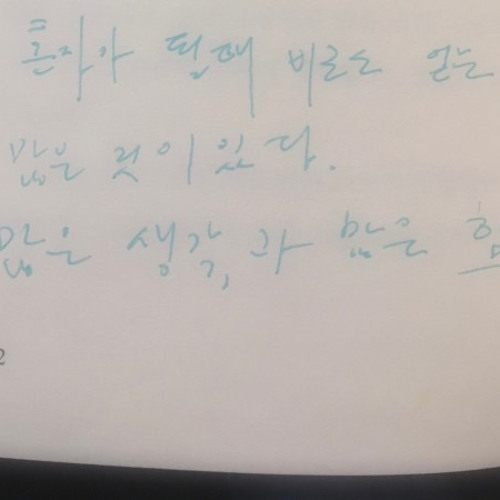 혼자가 될 때 비로소 얻는
많은 것이 있다.
많은 생각과 많은
2